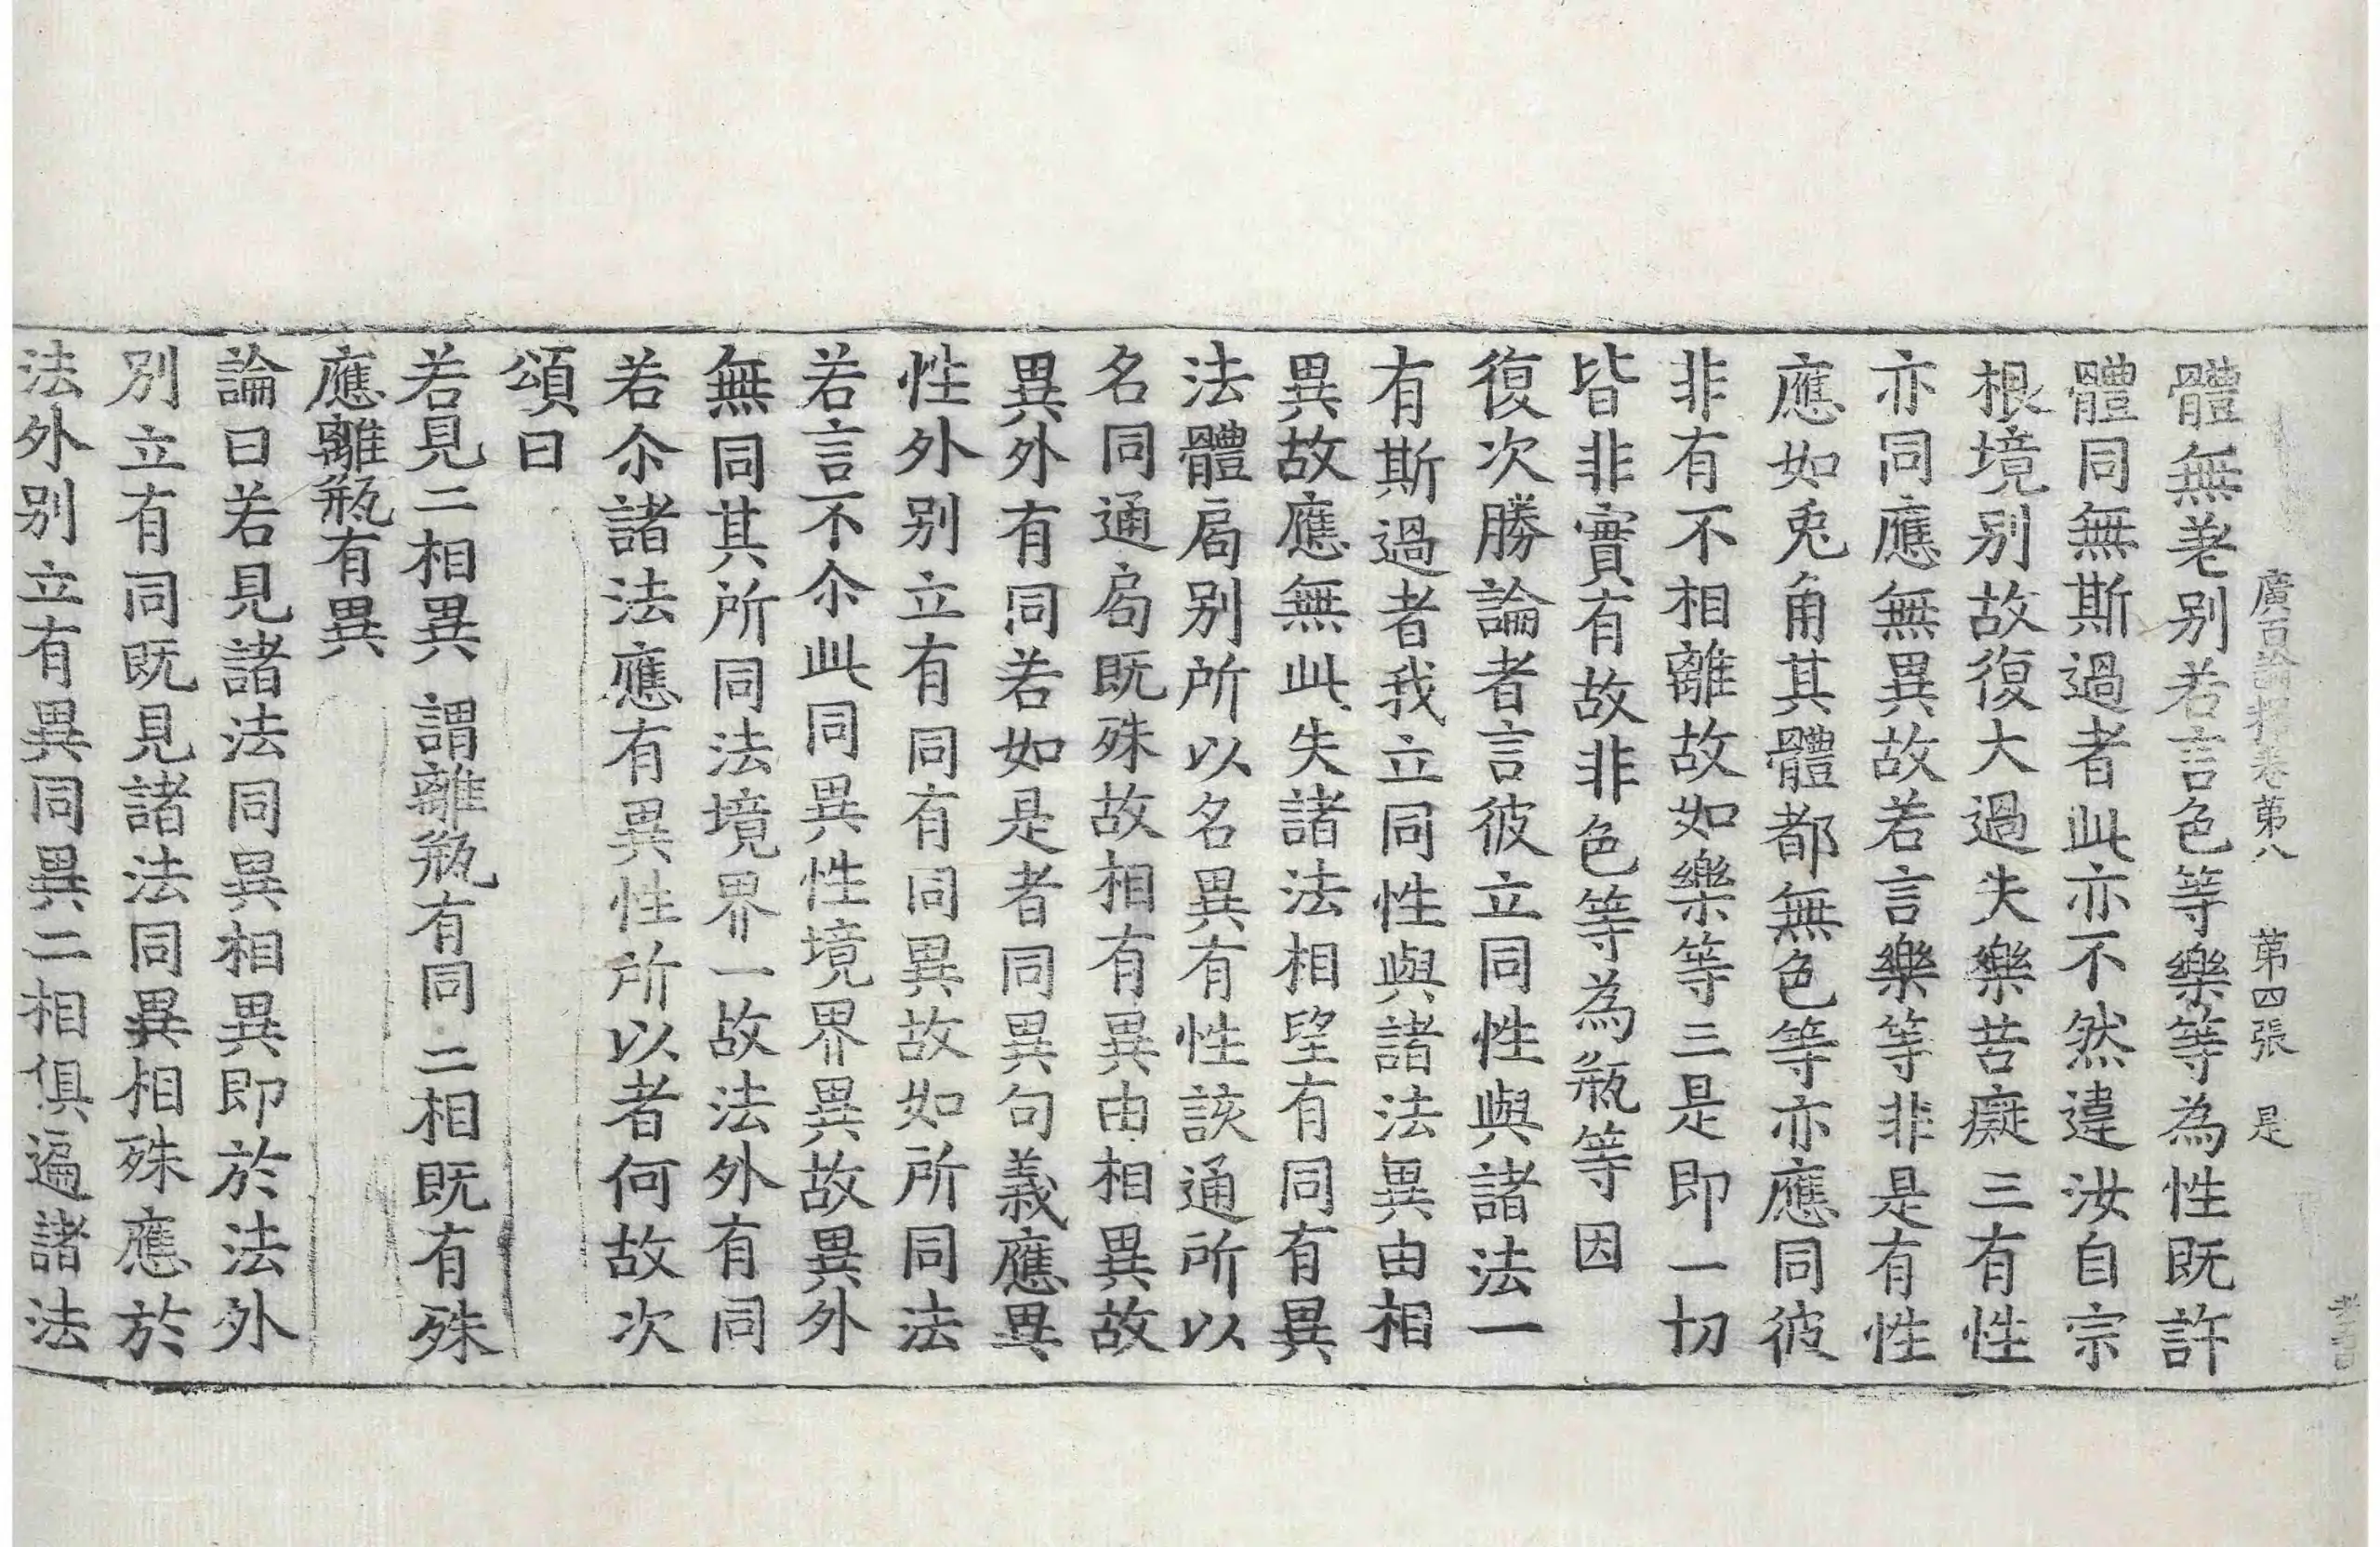 廣百論釋卷第八　第四張　是
體無差别若言色等樂等為性既許
體同無斯過者此亦不然違汝自宗
根境别故復大過失樂苦癡三有性
亦同應無異故若言樂等非是有性
應如兎角其體都無色等亦應同彼
非有不相離故如樂等三是即一切
皆非實有故非色等為瓶等因
復次勝論者言彼立同性與諸法一
有斯過者我立同性與諸法異由相
異故應無此失諸法相望有同有異
法體局别所以名異有性該通所以
名同通局既殊故相有異由相異故
異外有同若如是者同異句義應異
性外别立有同有同異故如所同法
若言不尒此同異性境界異故異外
無同其所同法境界一故法外有同
若尒諸法應有異性所以者何故次
頌曰
若見二相異　謂離瓶有同　二相既有殊
應離瓶有異
論曰若見諸法同異相異即於法外
别立有同既見諸法同異相殊應於
法外别立有異同異二相俱遍諸法